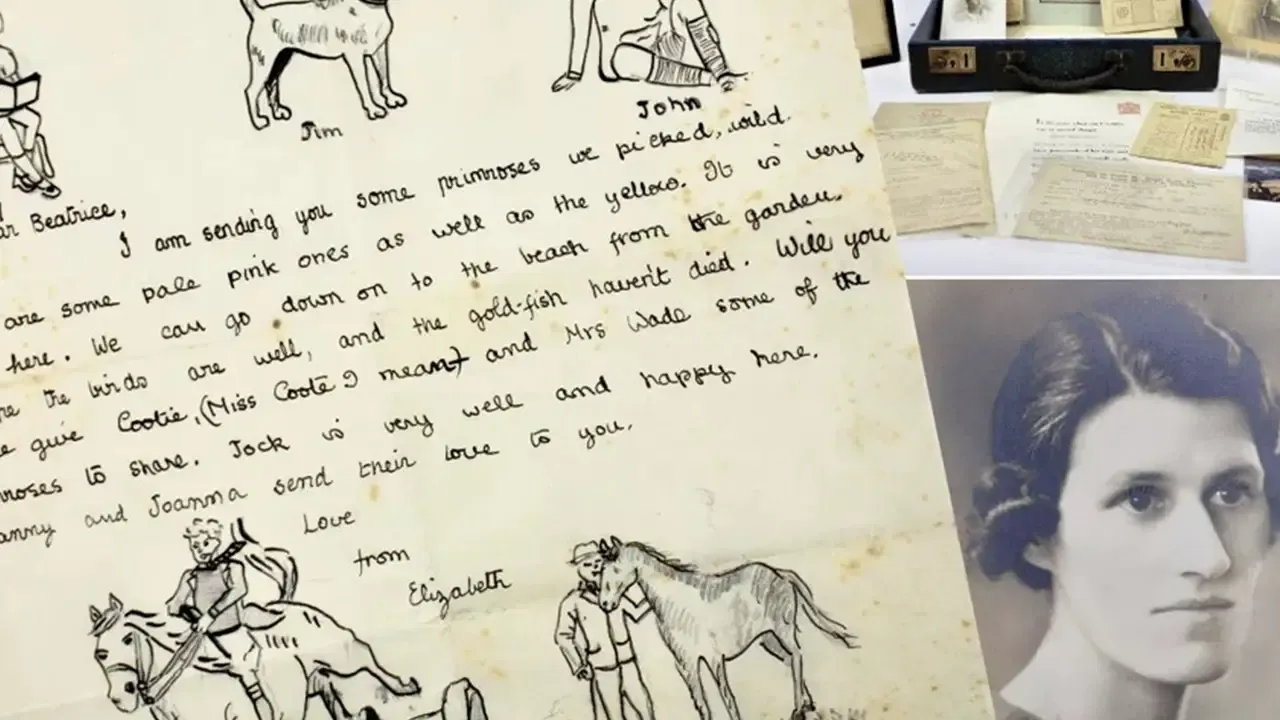 Jim
John
Beatrice,
I am sending you some primroses we picked, wild.
are some pale pink ones as well as the yellow. It is very
here. We can go down on to the beach from the garden.
the birds are well, and the gold-fish haven't died. Will you
give Cootie, (Miss Coote I meant) and Mrs Wade some of the
to share. Jock is very well and happy here.
and Joanna send their love to you.
Love
from
Elizabeth